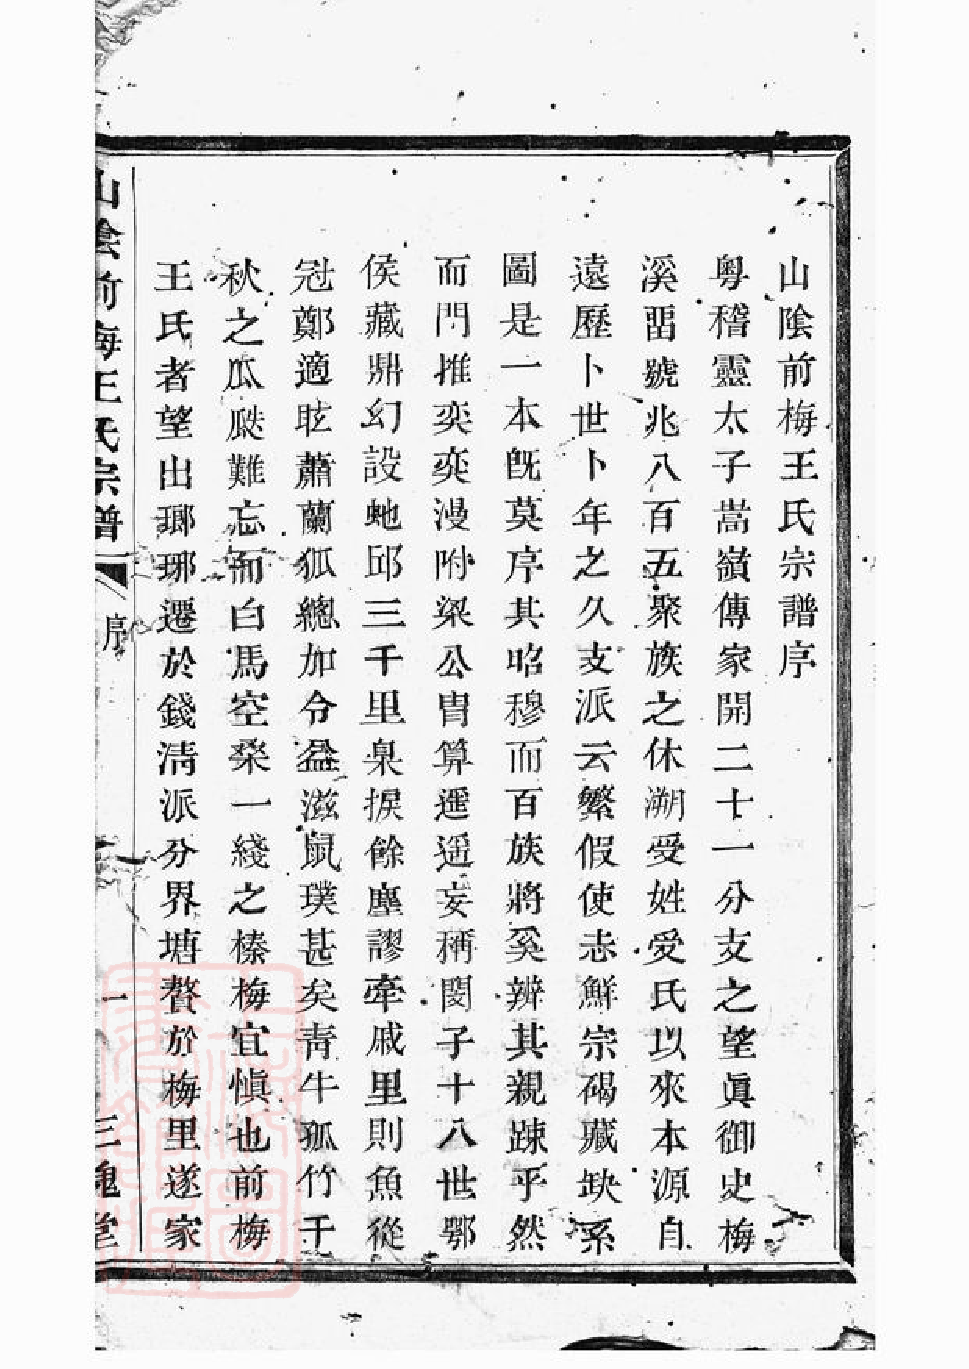 山陰前梅王氏宗譜序
粵稽靈太子嵩嶺傳家開二十一分支之望眞御史梅
溪畱號兆八百五聚族之休溯受姓爰氏以來本源自
遠歷卜世卜年之久支派云繁假使志鮮宗碣藏缺系
圖是一本旣莫序其昭穆而百族將奚辨其親踈乎然
而門推奕奕漫附梁公胄算遲遥妄稱閔子十八世鄂
侯藏鼎幻設虵邱三千里臬捩餘塵謬牽戚里則魚從
冠鄭適眩蕭蘭狐總加令益滋鼠璞甚矣靑牛孤竹千
秋之瓜瓞難忘而白馬空桑一綫之榛梅宜愼也前梅
王氏者望出瑯琊遷於錢淸派分界塘贅於梅里遂家
山陰前梅王氏宗譜
序
一
三槐堂